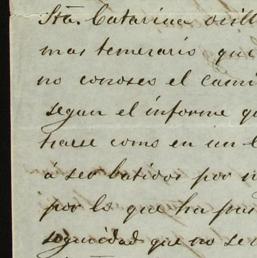 Sta. Catarina orill
mas temerario que
no conoses el cami
segun el informe qu
harse como en un
á ser batidos por
por lo que ha
seguridad que no se